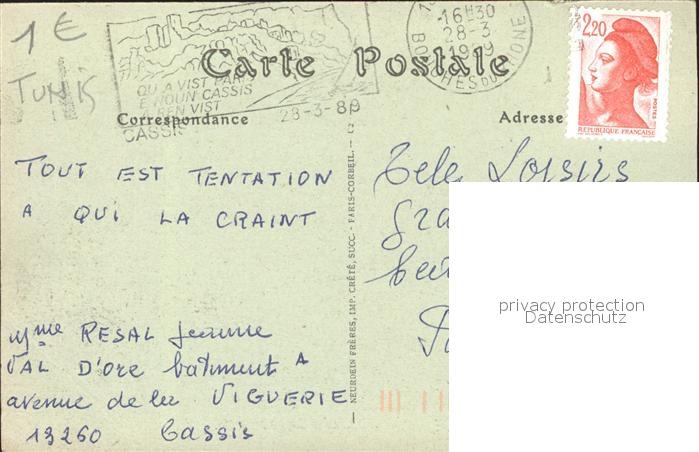 1 €
TUNIS
QU A VIST PARIS
E NOUN CASSIS
A REN VIST
CASSIS
28-3-89
16H30
28-3
1989
BOUCHES DU RHONE
2,20
POSTES
REPUBLIQUE FRANÇAISE
Carte Postale
Correspondance
Adresse
TOUT EST TENTATION
A QUI LA CRAINT
Mme RESAL Jeanne
VAL D'ORE batiment A
avenue de la VIGUERIE
13260 Cassis
NEURDEIN FRÈRES, IMP. CRÉTÉ, SUCC. - PARIS-CORBEIL.
Tele Loisirs
privacy protection
Datenschutz